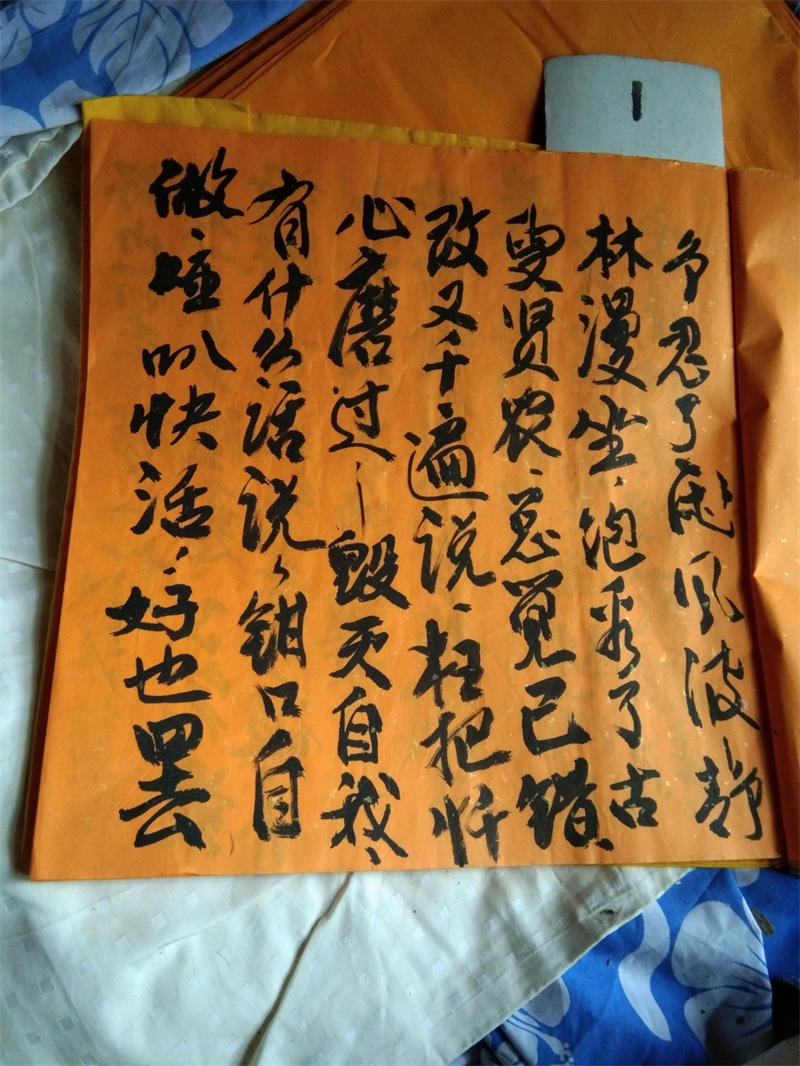 1
争忍了风波静
林漫坐、饱看了古
贤农、总觉已错、
改又千遍说、枉把忏
心磨过、毁灭自我、
有什么话说、钳口自
做哑叭快活、好也罢